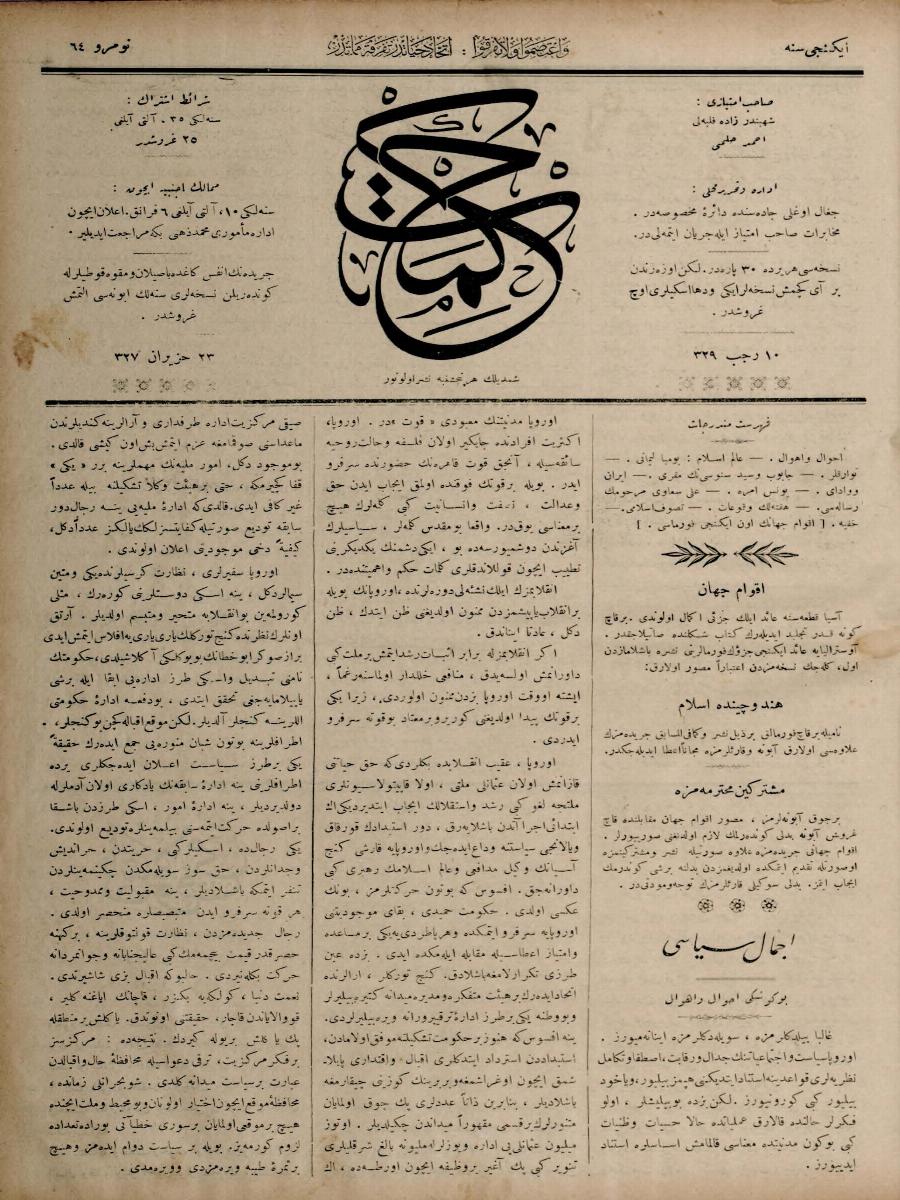 ایكنجی سنه
واعتصموا ولا تفرقوا : اتحاد حیاتدر تفرقه مماتدر
نومرو ٦٤
صاحب امتیازی :
شهبندر زاده فلبه‌لی
احمد حلمی
اداره و تحریر محلی :
جغال اوغلی جاده‌سنده دائرۀ مخصوصه‌در .
مخابرات صاحب امتیاز ایله جریان ایتمه‌لی‌در.
نسخه‌سی هر یرده ٣٠ پاره‌در. لكن اوزه‌رندن
بر آی كچمش نسخه‌لر ایكی و دها اسكیلری اوچ
غروشدر .
١٠ رجب ٣٢٩
حكمت
شمدیلك هر پنجشنبه نشر اولونور
شرائط اشتراك :
سنه‌لكی ٣٥ ـ آلتی آیلغی
٢٥ غروشدر
ممالك اجنبیه ایچون :
سنه‌لكی ١٠، آلتی آیلغی ٦ فرانق. اعلان ایچون
اداره مأموری محمد ذهنی بكه مراجعت ایدیلیر ٠
جریده‌نك انفس كاغده باصیلان و مقوه قوطیلرله
كوندریلن نسخه‌لری سنه‌لك ابونه‌سی التمش
غروشدر .
٢٣ حزیران ٣٢٧
فهرست مندرجات
احوال واهوال . — عالم اسلام : بومبا لیمانی . —
نوارقلر . — جابوب وسید سنوسی‌نك مقری . — ایران
ووادای . — یونس امره . — علی سعاوی مرحومك
رساله‌سی. — هفته‌لك وقوعات . — تصوف اسلامی.—
خفیه . [ اقوام جهانك اون ایكنجی فورماسی . ]
اقوام جهان
آسیا قطعه‌سنه عائد ایلك جزئی اكمال اولوندی . برقاچ
كونه قدر تجلید ایدیله‌رك كتاب شكلنده صاتیله‌جقدر .
آوسترالیایه عائد ایكنجی جزؤك فورمالرینی نشره باشلامازدن
اول، كله‌جك نسخه‌مزدن اعتباراً مصور اولارق:
هند وچینده اسلام
نامیله برقاچ فورمالق بر ذیل نشر وكمافی السابق جریده‌مزك
علاوه‌سی اولارق آبونه وقارئلرمزه مجاناً اعطا ایدیله‌جكدر.
مشتركین محترمه‌مزه
برچوق آبونه‌لرمز ، مصور اقوام جهان مقابلنده قاچ
غروش آبونه بدلی كوندرلمك لازم اولدغنی صورییورلر .
اقوام جهانی جریده‌مزه علاوه صورتیله نشر ومشتركینمزه
اوصورتله تقدیم ایتمكده اولدیغمزدن بدلنه برشی كوندرمك
ایجاب ایتمز. یدلی سوكیلی قارئلرمزك توجه ومودتی‌در .
اجمال سیاسی
بوكونكی احوال واهوال
غالبا بیلدكلرمزه ، سویله‌دكلرمزه اینانه‌میورز .
اوروپا سیاست واجتماعیاتنك جدال ورقابت، اصطفا وتكامل
نظریه‌لری قواعدینه استناد ایتدیكنی هپمز بیلیور، ویاخود
بیلیور كبی كورونیورز . لكن بزده بوبیلیشلر ، اولو
فكرلر حالنده قالارق عملیاتده حالا حسیات وظنیات
كبی بوكون مدنیتده معناسی قالمامش اساسلره استناد
ایدییورز .
اوروپا مدنیتنك معبودی « قوت » در . اوروپا،
اكثریت افرادنده جایگیر اولان فلسفه وحالت روحیه
سائقه‌سیله ، آنجق قوت قاهره‌نك حضورنده سرفرو
ایدر . بویله برقوتك فوقنده اولمق ایجاب ایدن حق
وعدالت ، نصفت وانسانیت كبی كله‌لرك هیچ
برمعناسی یوقدر. واقعا بومقدس كلمه‌لر ، سیاسیلرك
آغزندن دوشمیورسه‌ده بو ، ایكی دشمنك یكدیگرینی
تطییب ایچون قوللاندقلری كلمات حكم واهمیتنده‌در .
انقلابمزك ایلك نشئه‌لی دوره‌لرنده، اوروپانك بویله
برانقلاب یاپیشمزدن ممنون اولدیغنی ظن ایتدك ، ظن
دكل ، عادتا ایناندق.
اكر انقلابمزله برابر اثبات رشد ایتمش بر ملت كبی
داورانمش اولسه‌یدق، منافعی خللدار اولماسنه رغماً،
ایشته اووقت اوروپا بزدن ممنون اولوردی، زیرا یكی
برقوتك پیدا اولدیغنی كورر وبرمعتاد بوقوته سرفرو
ایدردی .
اوروپا ، عقیب انقلابده بكلردی‌كه حق حیاتی
قازانمش اولان عثمانلی ملتی ، اولا قاپیتولاسیونلری
ملتجه لغو كبی رشد واستقلالك ایجاب ایتدیردیكی اك
ابتدائی اجراآتدن باشلایه‌رق ، دور استبدادك قورقاق
ویالانجی سیاستنه وداع ایده‌جك واوروپایه قارشی كنج
آسیانك وكیل مدافعی وعالم اسلامك رهبری كبی
داورانه‌جق. افسوس كه بوتون حركتلرمز ، بونك
عكسی اولدی . حكومت حمیدی ، بقای موجودیتنی
اوروپایه سرفرو ایتمكده وهریاطردی‌یه یكی بر مساعده
وامتیاز اعطاسیله مقابله ایله‌مكده ایدی . بزده عین
طرزی تكرارلامغه باشلادق. كنج توركلر ، ارالرنده
اتحاد ایده‌رك برهیئت متفكره ومدیره میدانه كتیره‌بیلیرلر
وبووطنه یكی برطرز ادارۀ ترقیپرورانه ویره‌بیلیرلردی.
ینه افسوس كه هنوز برحكومت تشكیلنه موفق اولامادن،
استبداددن استرداد ایتدكلری اقبال واقتداری پایلا-
شمق ایچون اوغراشمغه وبربرینك كوزینی چیقارمغه
باشلادیلر ، بنابرین ذاتاً عددلری پك چوق اولمایان
متنورلرك برقسمی مقهوراً میداندن چكیلدیلر . اوتوز
میلیون عثمانلی‌یی اداره وبوزلرله میلیونه بالغ شرقلیلری
تنویر كبی پك آغیر بروظیفه ایچون اورطه‌ده ، اك
صیقی مركزیت اداره طرفداری و آرالرینه كندیلرندن
ماعداسنی صوقمامغه عزم ایتمش بش اون كیشی قالدی.
بوموجود دكل، امور ملیه‌نك مهملرینه برر « یكی »
قفا كچیرمكه ، حتی برهیئت وكلا تشكیلنه بیله عدداً
غیر كافی ایدی. قالدی‌كه ادارۀ ملیه‌یی ینه رجال دور
سابقه تودیع صورتیله كفایتسزلكك یالكز عدداً دكل،
كیفیةً دخی موجودیتی اعلان اولوندی .
اوروپا سفیرلری ، نظارت كرسیلرنده یكی ومتین
سیمالر دكل ، ینه اسكی دوستلرینی كوره‌رك ، مثلی
كورولمه‌ین بوانقلابه متحیر ومتبسم اولدیلر . آرتق
اونلرك نظرنده كنج توركلك یاری یاری‌یه افلاس ایتمش ایدی
براز صوكرا بوخطانك بویوكلكی آكلاشیلدی، حكومتك
نامنی تبدیل واسكی طرز اداره‌یی ابقا ایله برشی
یاپیلامایه‌جغی تحقق ایتدی ، بودفعه ادارۀ حكومتی
اللرینه كنجلر آلدیلر. لكن موقع اقباله كچن بوكنجلر ،
اطرافلرینه بوتون شبان منوره‌یی جمع ایده‌رك حقیقةً
یكی برطرز سیاست اعلان ایده‌جكلری یرده
اطرافلرینی ینه ادارۀ سابقه‌نك یادكاری اولان آدملرله
دولدیردیلر ، ینه ادارۀ امور ، اسكی طرزدن باشقا
براصولده حركت ایتمه‌سنی بیلمه‌ینلره تودیع اولوندی.
یكی رجال‌ده ، اسكیلر كبی ، حریتدن ، حراندیش
وجدانلردن ، حق سوز سویله‌مكدن چكینمه‌ینلردن
تنفر ایتمكه باشلادیلر ، ینه مقبولیت وممدوحیت ،
هر قوته سرفرو ایدن متبصبصلره منحصر اولدی .
رجال جدیده‌مزدن ، نظارت قولتوقلرینه ، بركهنه
حصر قدر قیمت بیچمه‌مك كبی عالیجنابانه وجوانمردانه
حركت بكله‌نیردی . حالبوكه اقبال بزی شاشیرتدی.
نعمت دنیا ، كولكه‌یه بكزر ، قاچانك آیاغنه كلیر ،
قووالایاندن قاچار، حقیقتنی اونوتدق. یاكلش بر منطقله
پك یاكلش بریوله كیردك . نتیجه‌ده : مركزسز
برفكر مركزیت، ترقی دعواسیله محافظۀ حال واقبالدن
عبارت برسیاست میدانه كلدی . شو بحرانلی زمانده ،
محافظۀ موقع ایچون اختیار اولونان وبو محیط وملت ایچنده
هیچ برموقعی اولمایان برسوری خطیاتی بوراده تعداده
لزوم كورمه‌یز. بویله بر سیاست دوام ایده‌مز وهیچ
برثمرۀ طیبه ویره‌مزدی وویره‌مدی .